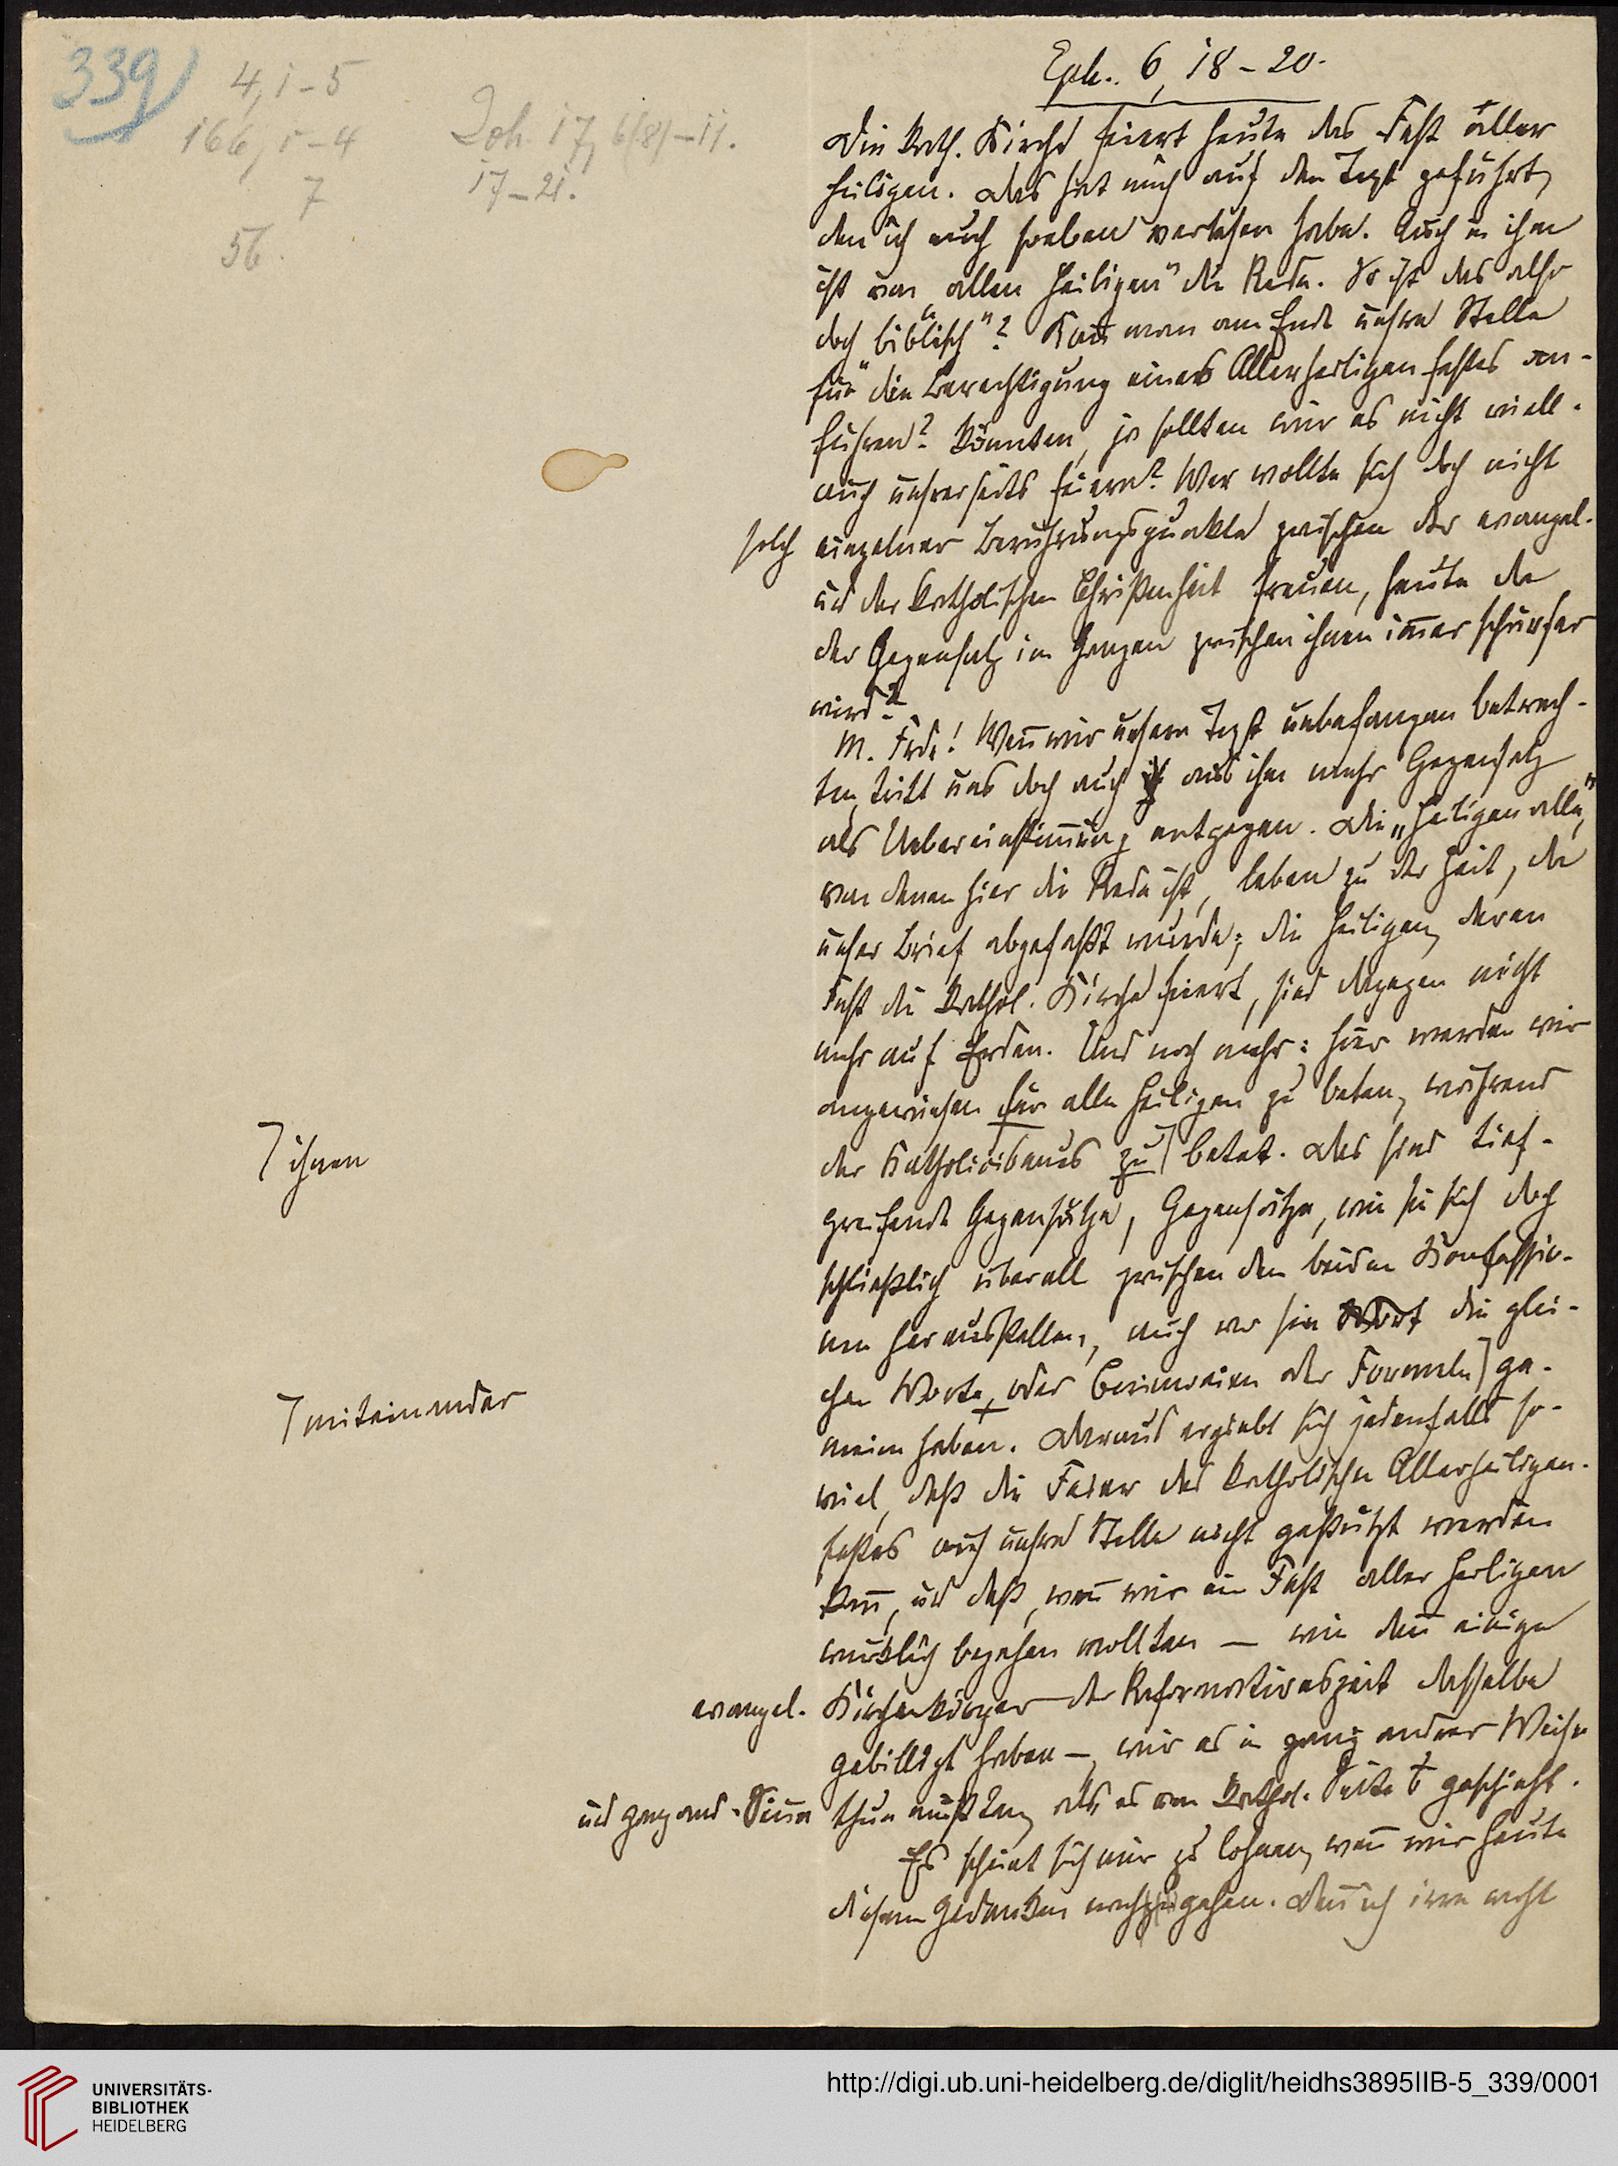 339)
4, 1-5
166, 1-4
7
56.
Joh. 17, 6(8)-11.
17-21.
Eph. 6, 18-20.
Die kath. Kirche feiert heute das Fest aller
Heiligen. Das hat mich auf den Text geführt,
den ich euch soeben verlesen habe. Auch in ihm
ist von „allen Heiligen" die Rede. So ist das also
doch „biblisch"? Kann man am Ende unsre Stelle
für die Berechtigung eines Allerheiligenfestes an-
führen? Könnten, ja sollten wir es nicht viell.
auch unsrerseits feiern? Wer wollte sich doch nicht
solch einzelner Berührungspunkte zwischen der evangel.
und der katholischen Christenheit freuen, heute da
der Gegensatz im Ganzen zwischen ihnen immer schärfer
wird?
M. Frde! Wenn wir unsern Text unbefangen betrach-
ten, tritt uns doch auch aus ihm mehr Gegensatz
als Uebereinstimmung entgegen. Die „Heiligen alle",
von denen hier die Rede ist, leben zu der Zeit, da
unser Brief abgefaßt wurde; die Heiligen, deren
Fest die kathol. Kirche feiert, sind dagegen nicht
mehr auf Erden. Und noch mehr: hier werden wir
angewiesen für alle Heiligen zu beten, während
der Katholicismus zu betet. Das sind tief-
ihnen
greifende Gegensätze, Gegensätze, wie sie sich doch
schließlich überall zwischen den beiden Konfessio-
nen herausstellen, auch wo sie die glei-
chen Worte, oder Cerimonien oder Formeln ge-
miteinander
mein haben. Daraus ergiebt sich jedenfalls so-
viel, daß die Feier des katholischen Allerheiligen-
festes auf unsre Stelle nicht gestützt werden
kann, und daß, wenn wir ein Fest aller Heiligen
wirklich begehen wollten — wie denn einige
evangel. Kirchenkörper der Reformationszeit dasselbe
gebilligt haben —, wir es in ganz andrer Weise
und ganz and. Sinn thun müßten, als es von kathol. Seite geschieht.
Es scheint sich mir zu lohnen, wenn wir heute
diesem Gedanken nachgehen. Denn ich irre nicht
UNIVERSITÄTS-
BIBLIOTHEK
HEIDELBERG
http://digi.ub.uni-heidelberg.de/diglit/heidhs3895IIB-5_339/0001